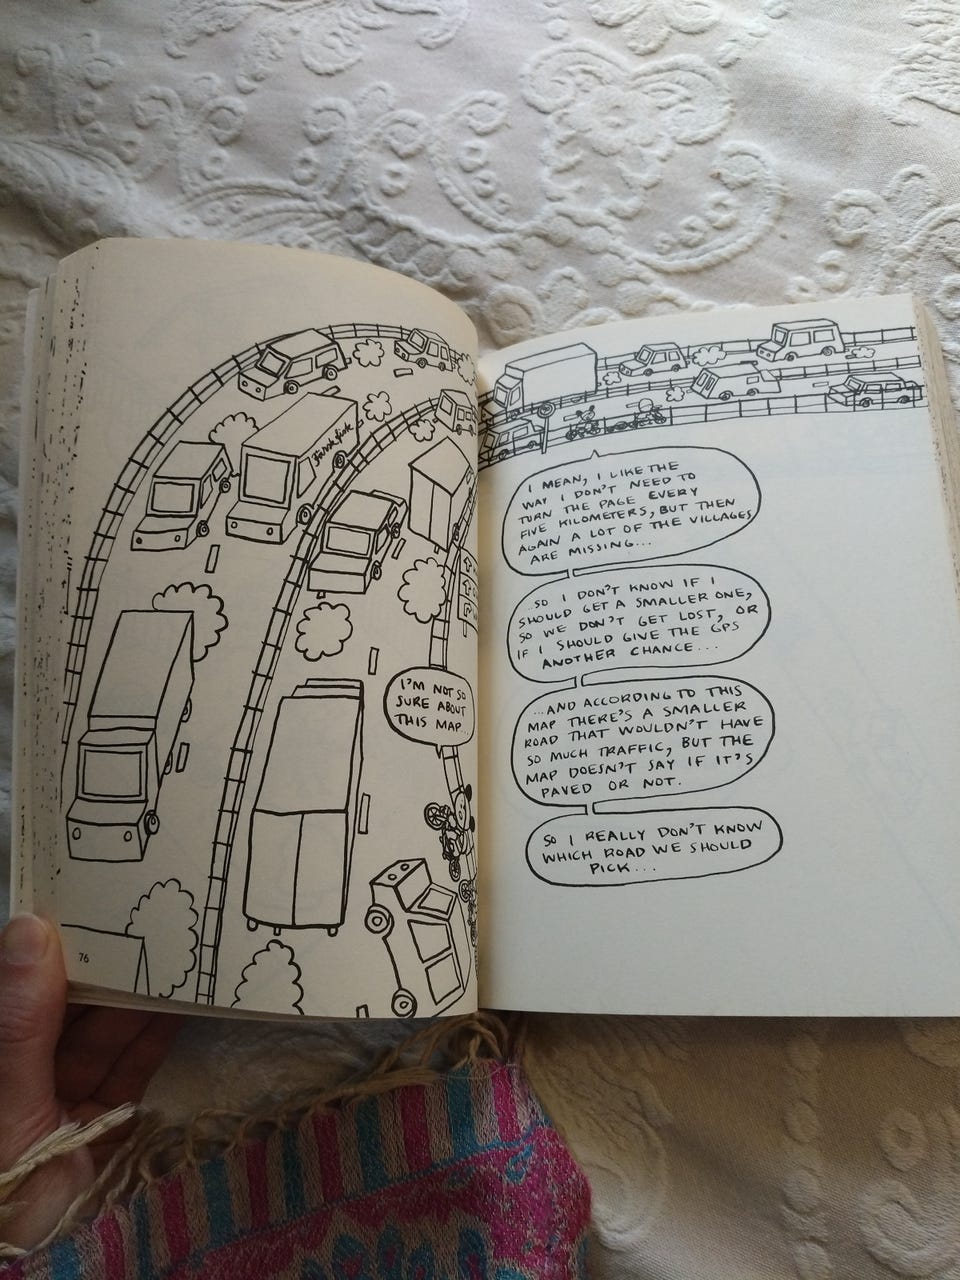 76
I'M NOT SO
SURE ABOUT
THIS MAP...
I MEAN, I LIKE THE
WAY I DON'T NEED TO
TURN THE PAGE EVERY
FIVE KILOMETERS, BUT THEN
AGAIN A LOT OF THE VILLAGES
ARE MISSING...
...SO I DON'T KNOW IF I
SHOULD GET A SMALLER ONE,
SO WE DON'T GET LOST, OR
IF I SHOULD GIVE THE GPS
ANOTHER CHANCE...
...AND ACCORDING TO THIS
MAP THERE'S A SMALLER
ROAD THAT WOULDN'T HAVE
SO MUCH TRAFFIC, BUT THE
MAP DOESN'T SAY IF IT'S
PAVED OR NOT.
SO I REALLY DON'T KNOW
WHICH ROAD WE SHOULD
PICK...